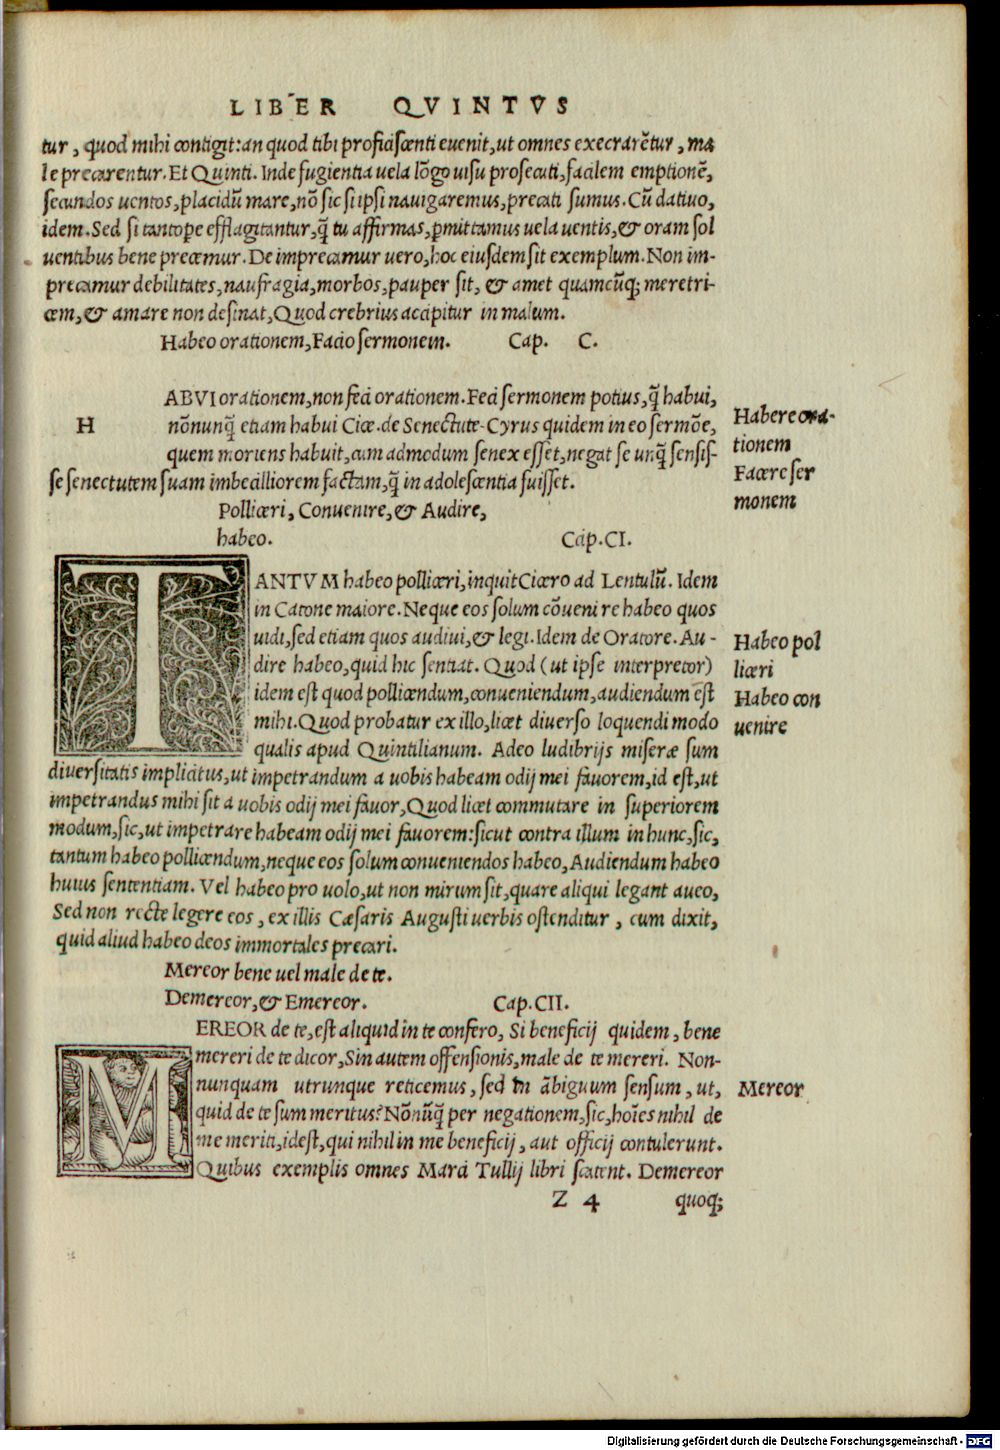 LIBER QVINTVS
tur, quod mihi contigit: an quod tibi proficiscenti evenit, ut omnes execrarẽtur, ma
le precarentur. Et Quinti. Inde fugientia uela lõgo uisu prosecuti, facilem emptionẽ,
secundos uentos, placidũ mare, nõ sic si ipsi nauigaremus, precati sumus. Cũ dativo,
idem. Sed si tantoꝑe efflagitantur, q̃ tu affirmas, ꝑmittamus uela uentis, & oram sol
uentibus bene precemur. De imprecamur vero, hoc eiusdem sit exemplum. Non im-
precamur debilitates, naufragia, morbos, pauper sit, & amet quamcũq; meretri-
cem, & amare non desinat, Quod crebrius accipitur in malum.
Habeo orationem, Facio sermonem. Cap. C.
HABVI orationem, non feci orationem. Feci sermonem potius, q̃ habui,
nõnunq̃ etiam habui Cice. de Senectute. Cyrus quidem in eo sermõe,
quem moriens habuit, cum admodum senex esset, negat se unq̃ sensis-
se senectutem suam imbecilliorem factam, q̃ in adolescentia fuisset.
Habere ora-
tionem
Facere ser
monem
Polliceri, Convenire, & Audire,
habeo. Cap. CI.
TANTVM habeo polliceri, inquit Cicero ad Lentulũ. Idem
in Catone maiore. Neque eos solum cõuenire habeo quos
uidi, sed etiam quos audiui, & legi. Idem de Oratore. Au-
dire habeo, quid hic sentiat. Quod (ut ipse interpretor)
idem est quod pollicendum, conueniendum, audiendum est
mihi. Quod probatur ex illo, licet diverso loquendi modo
qualis apud Quintilianum. Adeo ludibrijs miseræ sum
diversitatis implicitus, ut impetrandum a uobis habeam odij mei fauorem, id est, ut
impetrandus mihi sit a uobis odij mei fauor, Quod licet commutare in superiorem
modum, sic, ut impetrare habeam odij mei fauorem: sicut contra illum in hunc, sic,
tantum habeo pollicendum, neque eos solum conueniendos habeo, Audiendum habeo
huius sententiam. Vel habeo pro uolo, ut non mirum sit, quare aliqui legant aueo,
Sed non recte legere eos, ex illis Cæsaris Augusti uerbis ostenditur, cum dixit,
quid aliud habeo deos immortales precari.
Habeo pol
liceri
Habeo con
uenire
Mereor bene uel male de te.
Demereor, & Emereor. Cap. CII.
MEREOR de te, est aliquid in te confero, Si beneficij quidem, bene
mereri de te dicor, Sin autem offensionis, male de te mereri. Non-
nunquam utrunque reticemus, sed in ãbiguum sensum, ut,
quid de te sum meritus? Nõnũq̃ per negationem, sic, hoĩes nihil de
me meriti, idest, qui nihil in me beneficij, aut officij contulerunt.
Quibus exemplis omnes Marci Tullij libri scatent. Demereor
Mereor
Z 4 quoq;
Digitalisierung gefördert durch die Deutsche Forschungsgemeinschaft - DFG